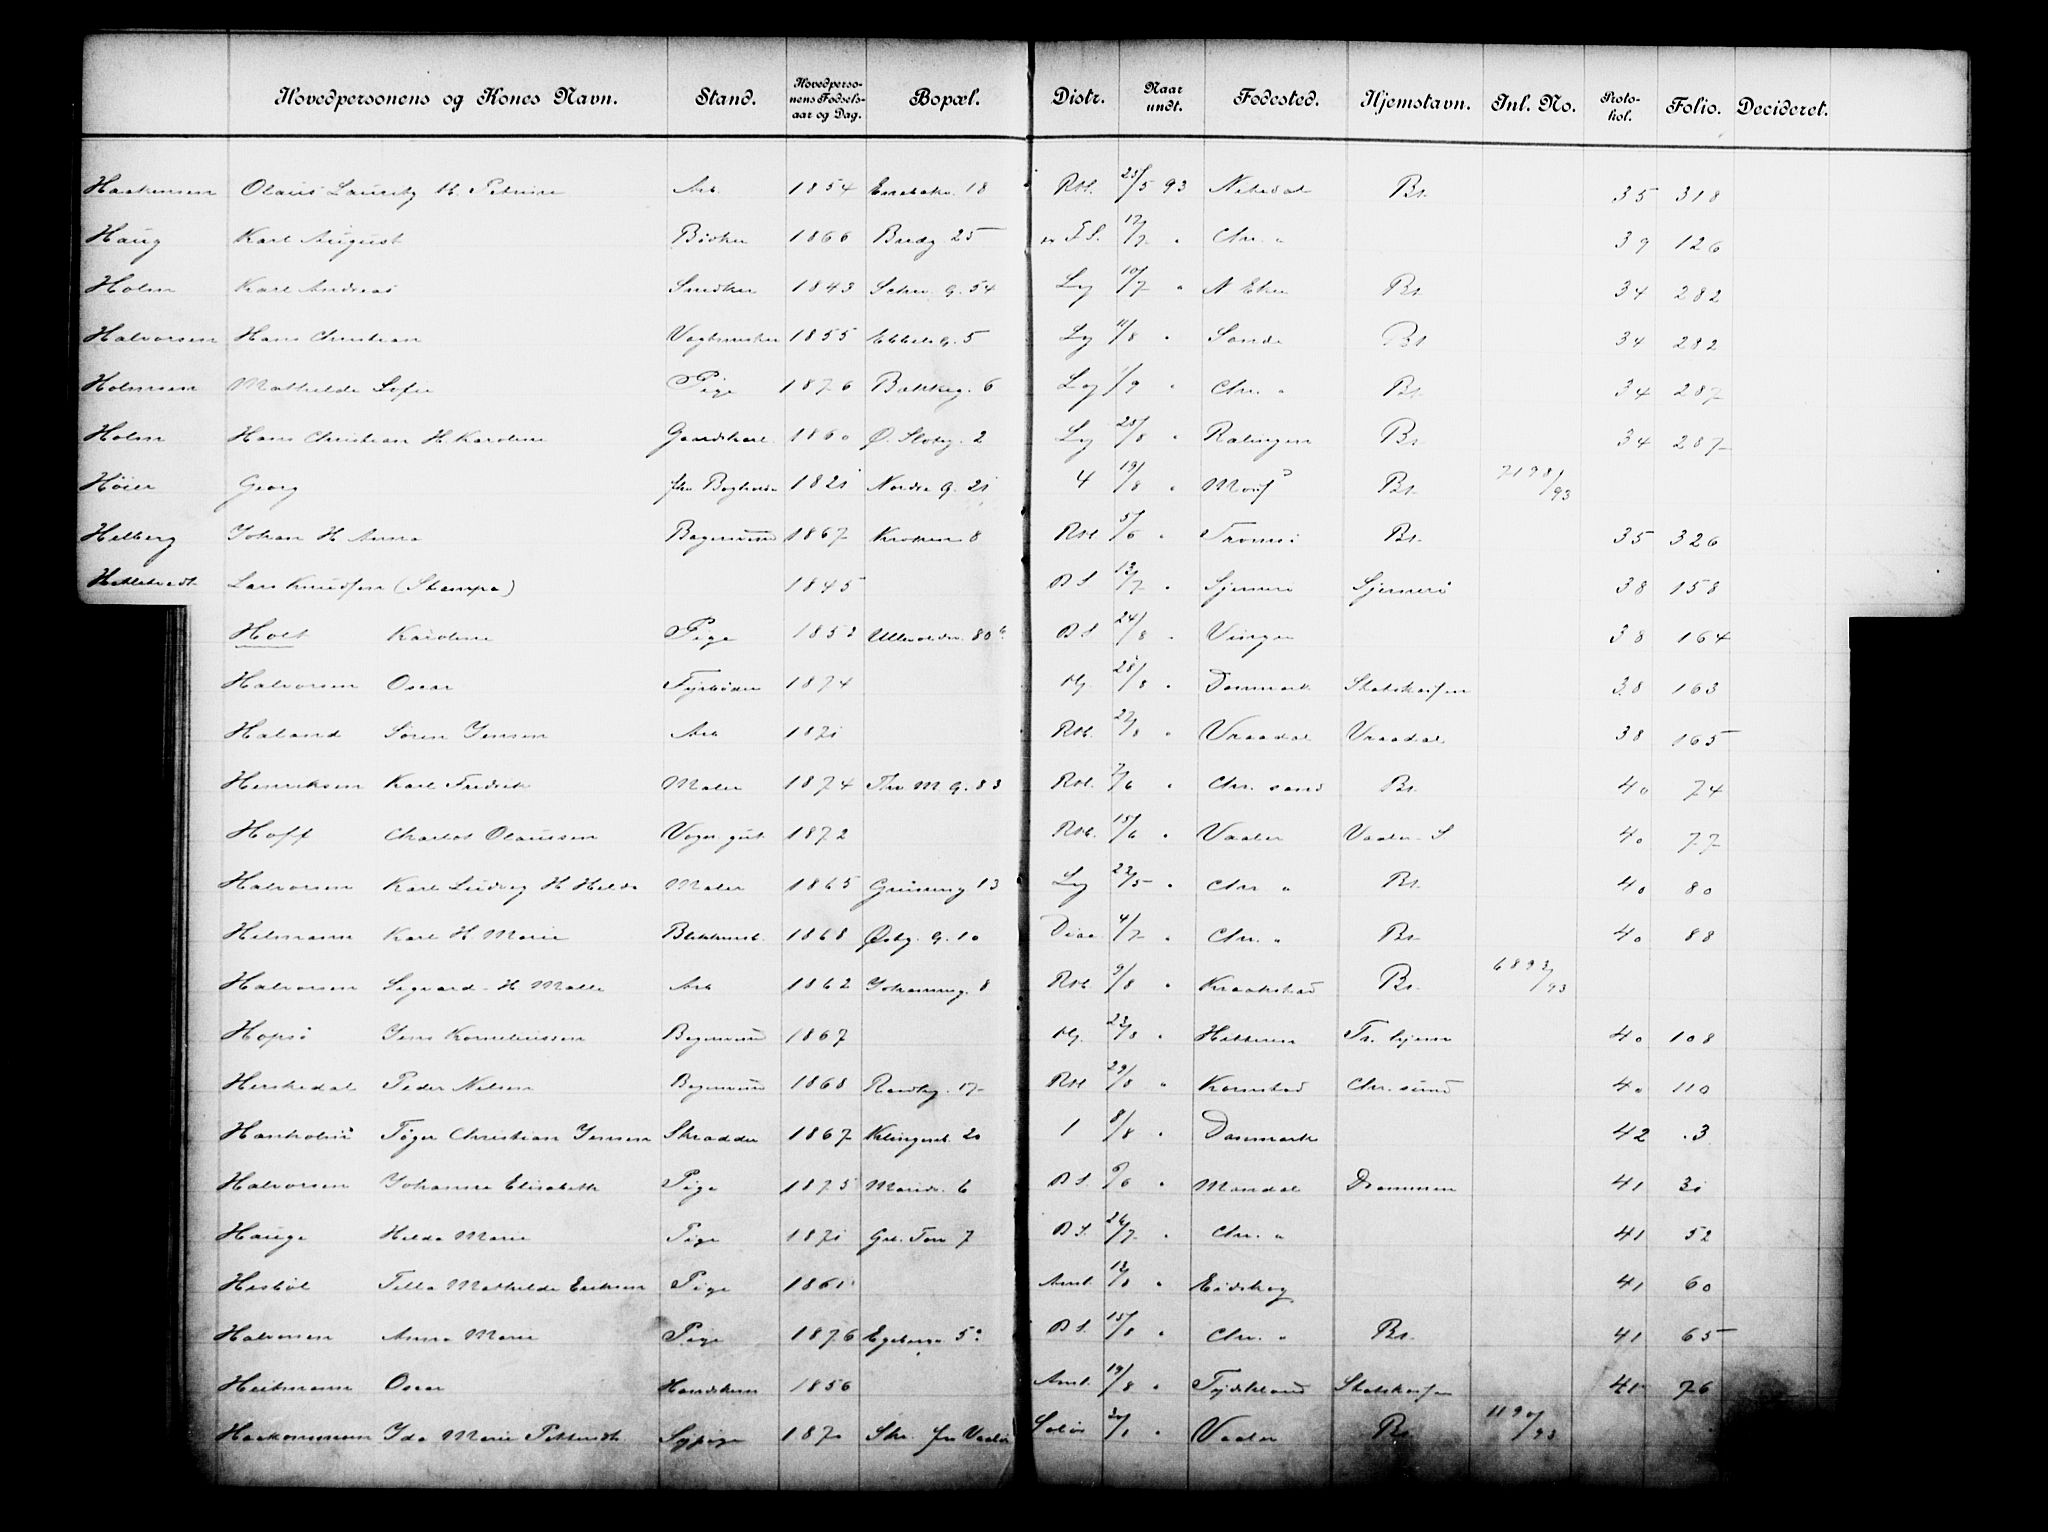 Hovedpersonens og Kones Navn. Stand. Hovedpersonens Fødselsaar og Dag. Bopæl. Distr. Naar undt. Fødested. Hjemstavn. Inl. No. Protokol. Folio. Decideret.
Haakensen Olaus Lauritz H. Petrine Arb 1854 18 Rtl. 23/5 93 Nitedal Bs. 35 318
Haug Karl August 1866 Brdg 25 F.S. 17/7 " Chr. " 39 126
Holm Karl Andreas Snedker 1843 Schw. g. 54 Lg 10/7 " N Eker Bs. 34 282
Halvorsen Hans Christian Vognmsker 1855 Ebbels g. 5 Lg 11/8 " Sande Bs 34 282
Holmsen Mathilde Sofie Pige 1876 Bakkeg. 6 Lg 1/9 " Chr. " Bs. 34 287
Holm Hans Christian H. Karoline Gaardskarl 1860 Ø. Slotsg. 2 Lg 25/8 " Rælingen Bs. 34 287
Høier Georg fhv Boghold 1821 Nordre g. 21 4 19/8 " Bs. 7198/93
Helberg Johan H Anna Bagersvend 1867 Kroken 8 Rtl 5/6 " Tromsø Bs. 35 326
Lars Knudsen (Stampa) 1845 B S. 13/7 " Sjernerø Sjernerø 38 158
Holt Karoline Pige 1853 Ullevoldsv. 80 B S 24/8 " Vinger 38 164
Halvorsen Oscar Fyrbøder 1874 Hg. 28/8 " Danmark Statskassen 38 163
Haland Søren Jensen Arb 1871 Rtl. 27/8 " Vraadal Vraadal 38 165
Henriksen Karl Fredrik Maler 1874 Thv. M g. 83 Rtl. 7/6 " Chr. sand Bs. 40 74
Hoff Charlot Olaussen Vogn. gut 1872 Rtl. 15/6 " Vaaler Vaaler S 40 77
Halvorsen Karl Ludvig H Hilda Maler 1865 Grünerg 13 Lg 22/5 " Chr " Bs. 40 80
Hilmann Karl H. Marie Blikkensl. 1868 Østg. g. 10 4/7 " Chr. " Bs 40 88
Halvorsen Sigvard H. Malla Arb 1862 Johannng. 8 Rtl. 9/8 " Kraakstad Bs. 6893/93
Hopsø Jens Korneliussen Bagersvend 1867 Hg. 23/8 " Hitteren Tr. hjem 40 108
Herskedal Peder Nilsen Bagersvend 1868 17 Rtl 29/8 " Kornstad Chr. sund 40 110
Hanholm Tøger Christian Jensen Skrædder 1867 Klingenb. 20 1 8/8 " Danmark 42 3
Halvorsen Johanna Elisabeth Pige 1875 Marids. 6 B S. 9/6 " Mandal Drammen 41 31
Hauge Hilda Marie Pige 1871 Gr. Torv 7 B S. 26/7 " Chr. " 41 52
Hesbøl Tilla Mathilde Eriksen Pige 1861 Aml. 12/8 " Eidskog 41 60
Halvorsen Anna Marie Pige 1876 Egeberg B S. 15/8 " Chr. " Bs. 41 65
Heitmann Oscar Handskem 1856 Aml. 19/8 " Tydskland Statskassen 41 76
Haakonsen Ida Marie Sypige 1870 Skr. fra Vaaler Solør " Vaaler Bs.